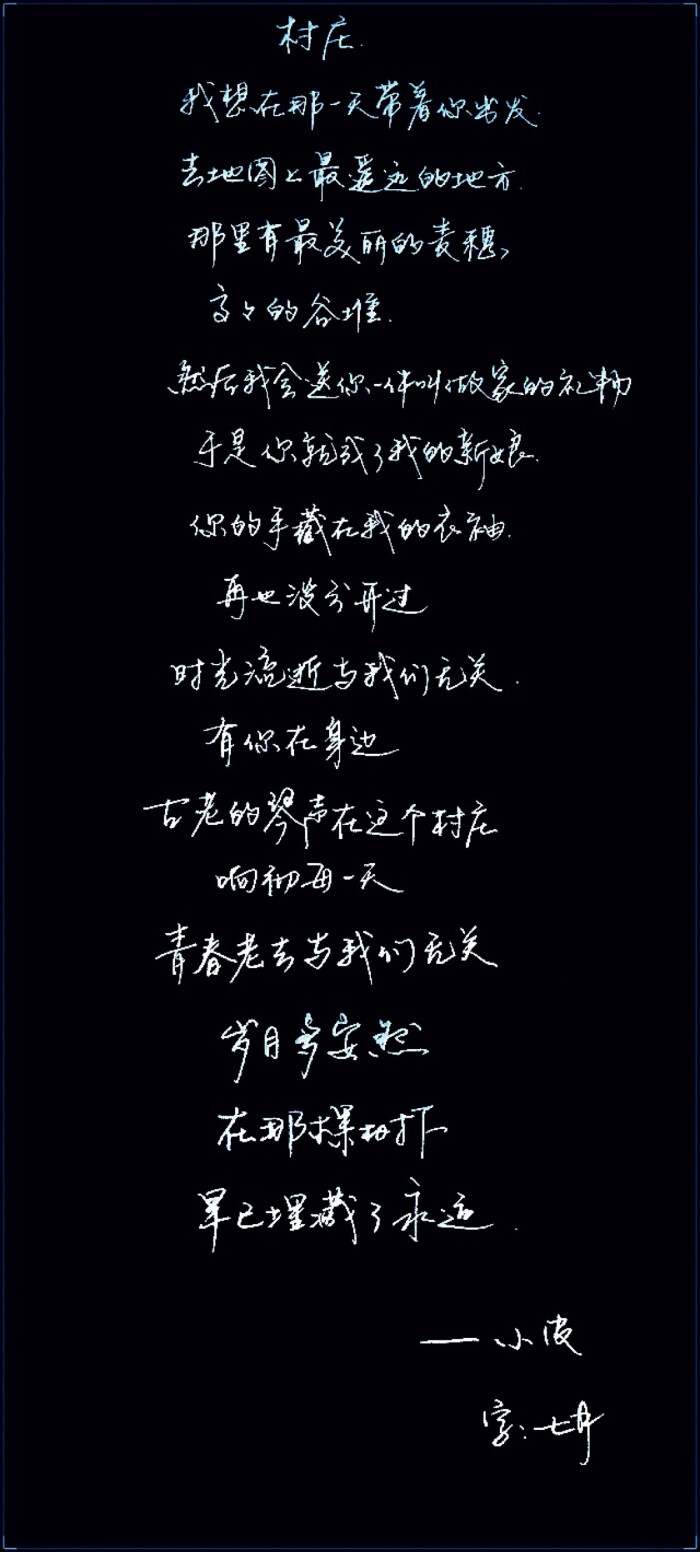 村庄.
我想在那一天带着你出发.
去地图上最遥远的地方.
那里有最美丽的麦穗,
高々的谷堆.
然后我会送你一件叫做家的礼物
于是你就成了我的新娘.
你的手藏在我的衣袖.
再也没分开过
时光流逝与我们无关.
有你在身边
古老的琴声在这个村庄
响彻每一天
青春老去与我们无关
岁月多安然
在那棵树下
早已埋藏了永远.
——小皮
字:七月